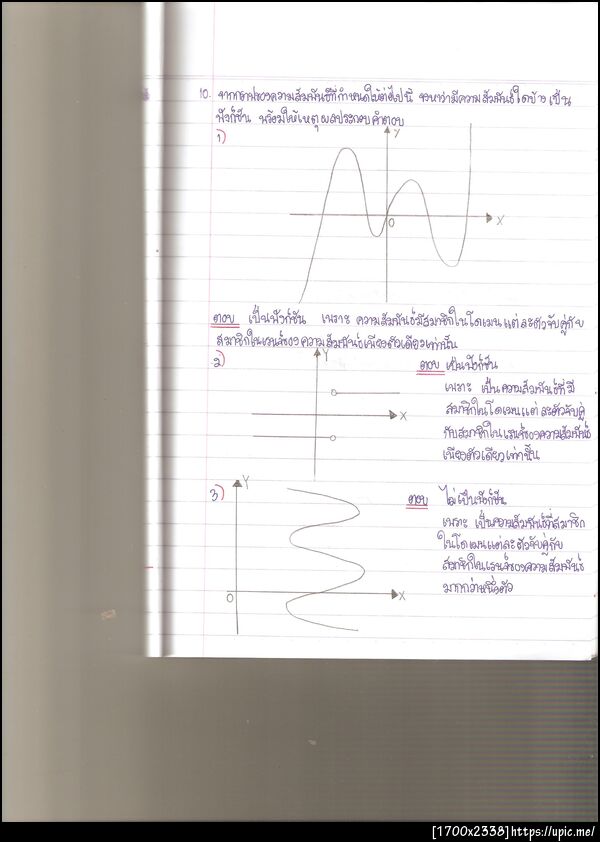 10. จากกราฟของความสัมพันธ์ที่กำหนดให้ต่อไปนี้ จงหาว่ามีความสัมพันธ์ใดบ้างเป็น
ฟังก์ชัน พร้อมให้เหตุผลประกอบคำตอบ
1)
Y
O
X
ตอบ เป็นฟังก์ชัน เพราะ ความสัมพันธ์มีสมาชิกในโดเมนแต่ละตัวจับคู่กับ
สมาชิกในเรนจ์ของความสัมพันธ์เพียงตัวเดียวเท่านั้น
2)
Y
X
ตอบ เป็นฟังก์ชัน
เพราะ เป็นความสัมพันธ์ที่มี
สมาชิกในโดเมนแต่ละตัวจับคู่
กับสมาชิกในเรนจ์ของความสัมพันธ์
เพียงตัวเดียวเท่านั้น
3)
Y
O
X
ตอบ ไม่เป็นฟังก์ชัน
เพราะ เป็นความสัมพันธ์ที่สมาชิก
ในโดเมนแต่ละตัวจับคู่กับ
สมาชิกในเรนจ์ของความสัมพันธ์
มากกว่าหนึ่งตัว
[1700x2338]https://upic.me/